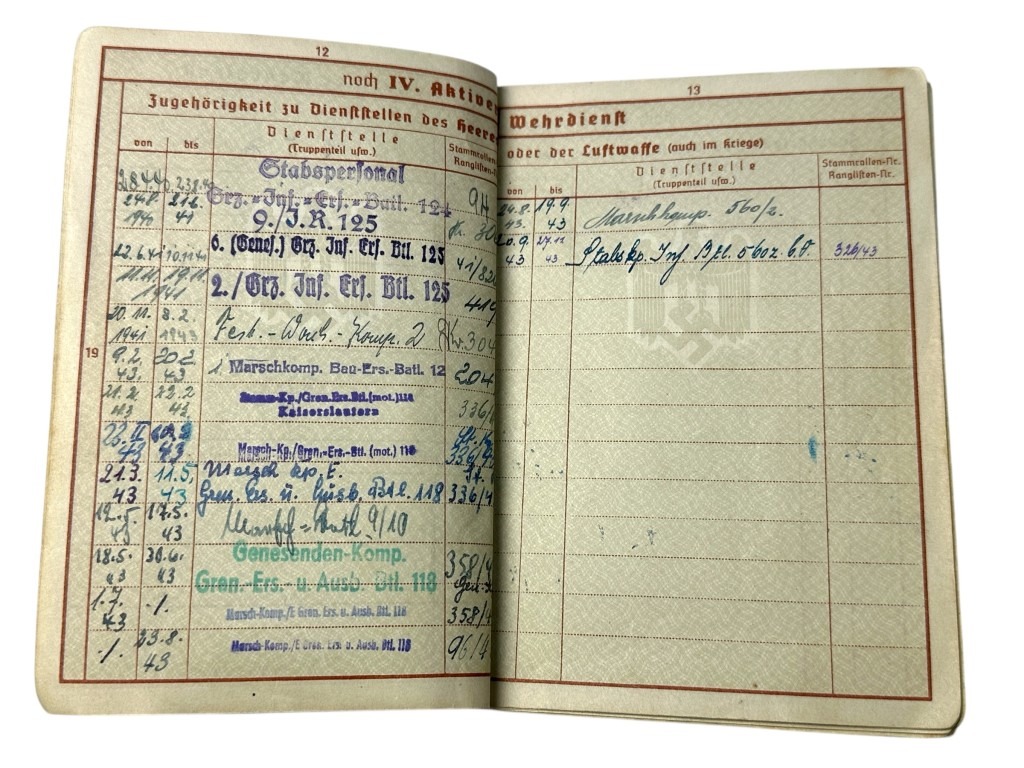 12
noch IV. Aktiver
Zugehörigkeit zu Dienststellen des Heere
von bis
Dienststelle
(Truppenteil usw.)
Stammrollen-
Ranglisten-
28.4.40 23.8.
Stabspersonal
Grz.-Inf.-Ers.-Batl. 124
24.8. 21.6.
1940 41
9./J.R. 125
22.6.41 10.11.41
6. (Genes.) Grz. Inf. Ers. Btl. 125
41/82
11.11. 19.11.
1941
2./Grz. Inf. Ers. Btl. 125
419
20.11. 8.2.
1941 1943
Fest.-Komp. 2
304
19
9.2. 20.2.
43. 43
1. Marschkomp. Bau-Ers.-Batl. 12
204
21.2. 22.2
43 43.
Stamm-Kp./Gren.Ers.Btl.(mot.)118
Kaiserslautern
336/
43 43
Marsch-Kp./Gren.-Ers.-Btl.(mot.) 118
336/
21.3. 11.5.
43 43
Marsch Kp. E.
Gren. Ers. u. Ausb. Btl. 118
336/4
12.5. 17.5.
43 43
9/10
18.5. 30.6.
43 43
Genesenden-Komp.
Gren.-Ers.-u. Ausb. Btl. 118
358/4
1.7. -/.
43
Marsch-Komp./E Gren. Ers. u. Ausb. Btl. 118
358/4
-/. 23.8.
43
Marsch-Komp./E Gren. Ers. u. Ausb. Btl. 118
96/4
13
Wehrdienst
oder der Luftwaffe (auch im Kriege)
von bis
Dienststelle
(Truppenteil usw.)
Stammrollen-Nr.
Ranglisten-Nr.
24.8. 19.9.
43. 43
Marschkomp. 560/2.
20.9. 27.11
43 43
Stabskp. Inf. Btl. 560 z.b.V.
326/43